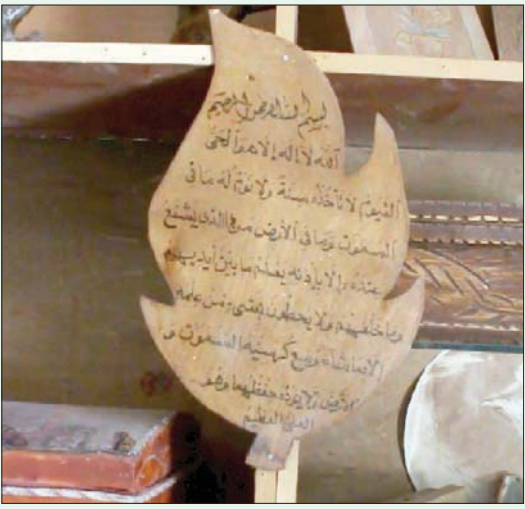 بسم الله الرحمن الرحيم
الله لا إله إلا هو الحي
القيوم لا تأخذه سنة ولا نوم له ما في
السموت وما في الأرض من ذا الذي يشفع
عنده إلا بإذنه يعلم ما بين أيديهم
وما خلفهم ولا يحيطون بشيء من علمه
إلا بما شاء وسع كرسيه السموت و
الأرض ولا يؤده حفظهما وهو
العلي العظيم